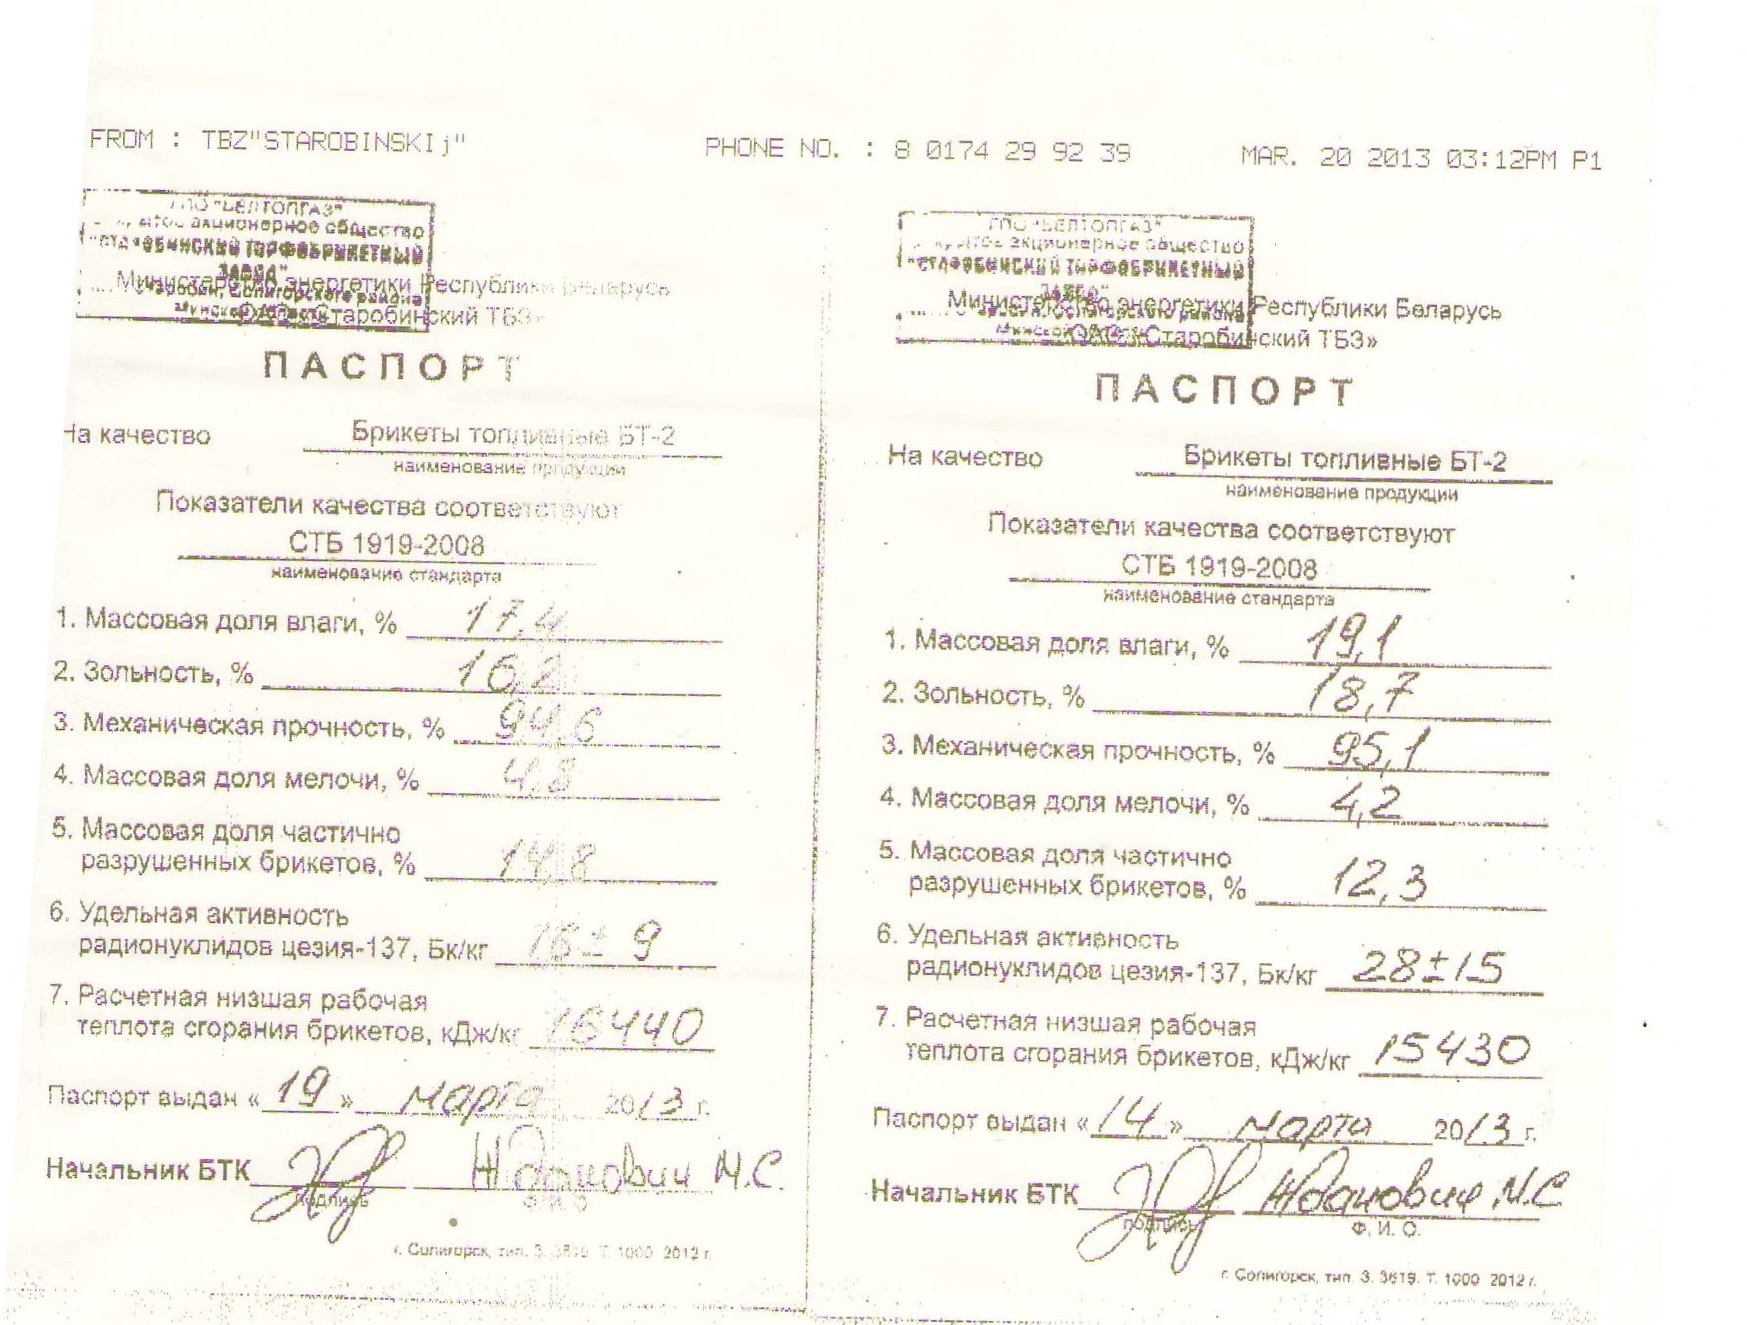 FROM : TBZ"STAROBINSKIj" PHONE NO. : 8 0174 29 92 39 MAR. 20 2013 03:12PM P1
ГПО "БЕЛТОПГАЗ"
акционерное общество
"СТАРОБИНСКИЙ ТОРФОБРИКЕТНЫЙ
ЗАВОД"
Министерство энергетики Республики Беларусь
Старобин, Солигорского района
Минской области
ОАО «Старобинский ТБЗ»
ПАСПОРТ
На качество Брикеты топливные БТ-2
наименование продукции
Показатели качества соответствуют
СТБ 1919-2008
наименование стандарта
1. Массовая доля влаги, % 17,4
2. Зольность, % 16,2
3. Механическая прочность, % 94,6
4. Массовая доля мелочи, % 4,8
5. Массовая доля частично
разрушенных брикетов, % 14,8
6. Удельная активность
радионуклидов цезия-137, Бк/кг 16± 9
7. Расчетная низшая рабочая
теплота сгорания брикетов, кДж/кг 16440
Паспорт выдан « 19 » марта 2013 г.
Начальник БТК Жданович М.С.
подпись Ф. И. О
г. Солигорск, тип. З. 3619. Т. 1000 2012 г.
ГПО "БЕЛТОПГАЗ"
акционерное общество
"СТАРОБИНСКИЙ ТОРФОБРИКЕТНЫЙ
ЗАВОД"
Министерство энергетики Республики Беларусь
Минской
ОАО «Старобинский ТБЗ»
ПАСПОРТ
На качество Брикеты топливные БТ-2
наименование продукции
Показатели качества соответствуют
СТБ 1919-2008
наименование стандарта
1. Массовая доля влаги, % 19,1
2. Зольность, % 18,7
3. Механическая прочность, % 95,1
4. Массовая доля мелочи, % 4,2
5. Массовая доля частично
разрушенных брикетов, % 12,3
6. Удельная активность
радионуклидов цезия-137, Бк/кг 28±15
7. Расчетная низшая рабочая
теплота сгорания брикетов, кДж/кг 15430
Паспорт выдан « 14 » марта 2013 г.
Начальник БТК Жданович М.С
подпись Ф. И. О.
г. Солигорск, тип. З. 3619. Т. 1000 2012 г.